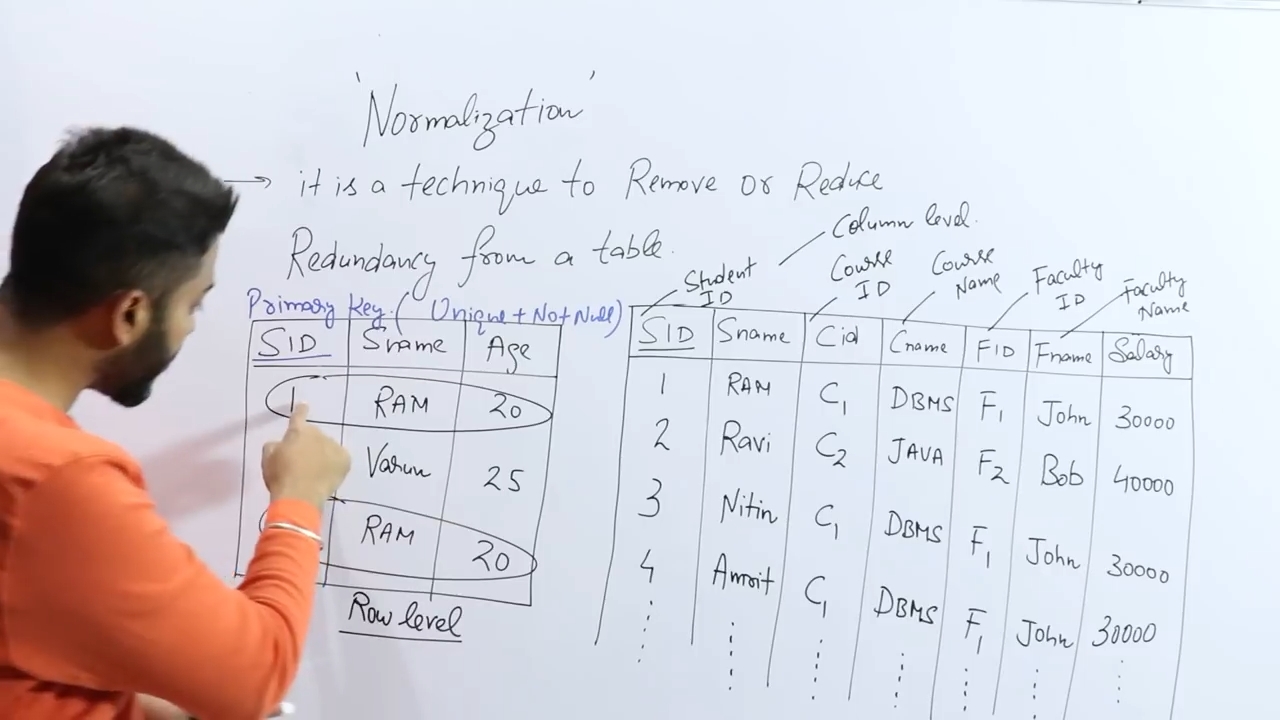 'Normalization'
→ it is a technique to Remove or Reduce
Redundancy from a table.
Column level.
Primary key. ( Unique + Not Null)
SID Sname Age
1 RAM 20
Varun 25
RAM 20
Row level
Student ID
Course ID
Course Name
Faculty ID
Faculty Name
SID Sname Cid Cname FID Fname Salary
1 RAM C1 DBMS F1 John 30000
2 Ravi C2 JAVA F2 Bob 40000
3 Nitin C1 DBMS F1 John 30000
4 Amrit C1 DBMS F1 John 30000